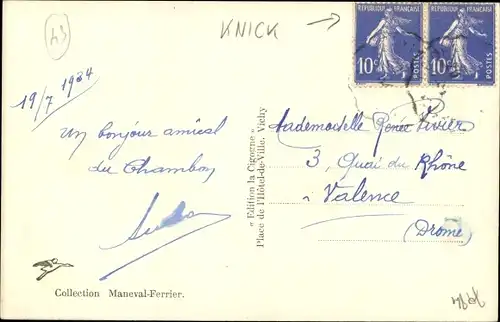 43
KNICK
REPUBLIQUE FRANÇAISE
10c
POSTES
REPUBLIQUE FRANÇAISE
10c
POSTES
19/7 1934
Un bonjour amical
du Chambon
« Edition la Cigogne »
Place de l'Hôtel-de-Ville. Vichy
Mademoiselle Renée Rivier
3, Quai du Rhône
à Valence
(Drome)
Collection Maneval-Ferrier.